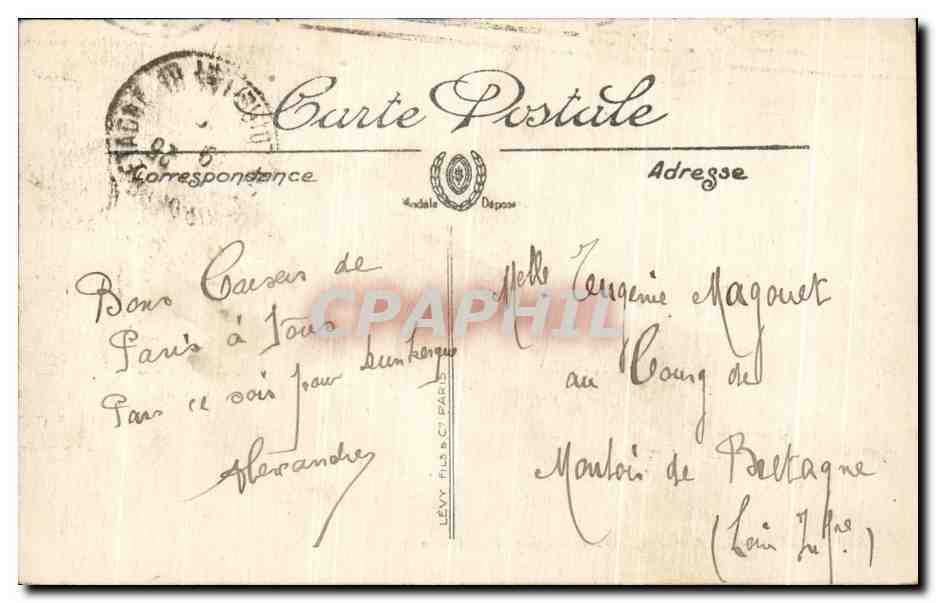 Carte Postale
Correspondance
Adresse
Modèle Déposé
Bons Baisers de
Paris à tous
Pars ce soir pour Dunkerque
Alexandre
LÉVY FILS & Cᴵᴱ PARIS
Melle Eugénie Magouet
au Bourg de
Montoir de Bretagne
(Loire Infre.)
CPAPHIL